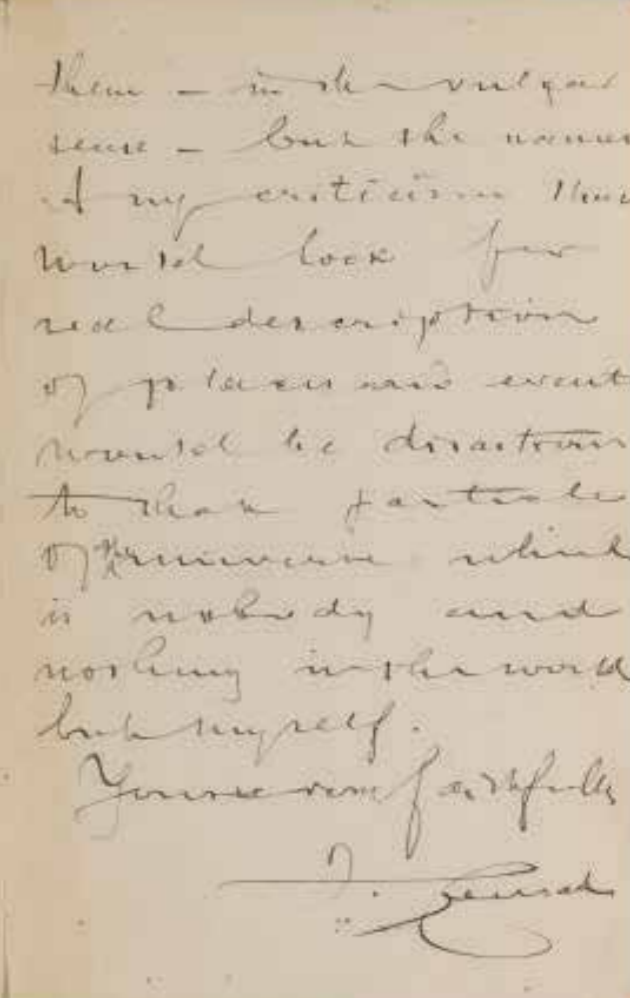 them – in the vulgar
sense – but the manner
of my criticism that
would look for
real description
of places and events
would be disastrous
to that particle
of the universe which
is nobody and
nothing in the world
but myself.
Yours very faithfully
J. Conrad